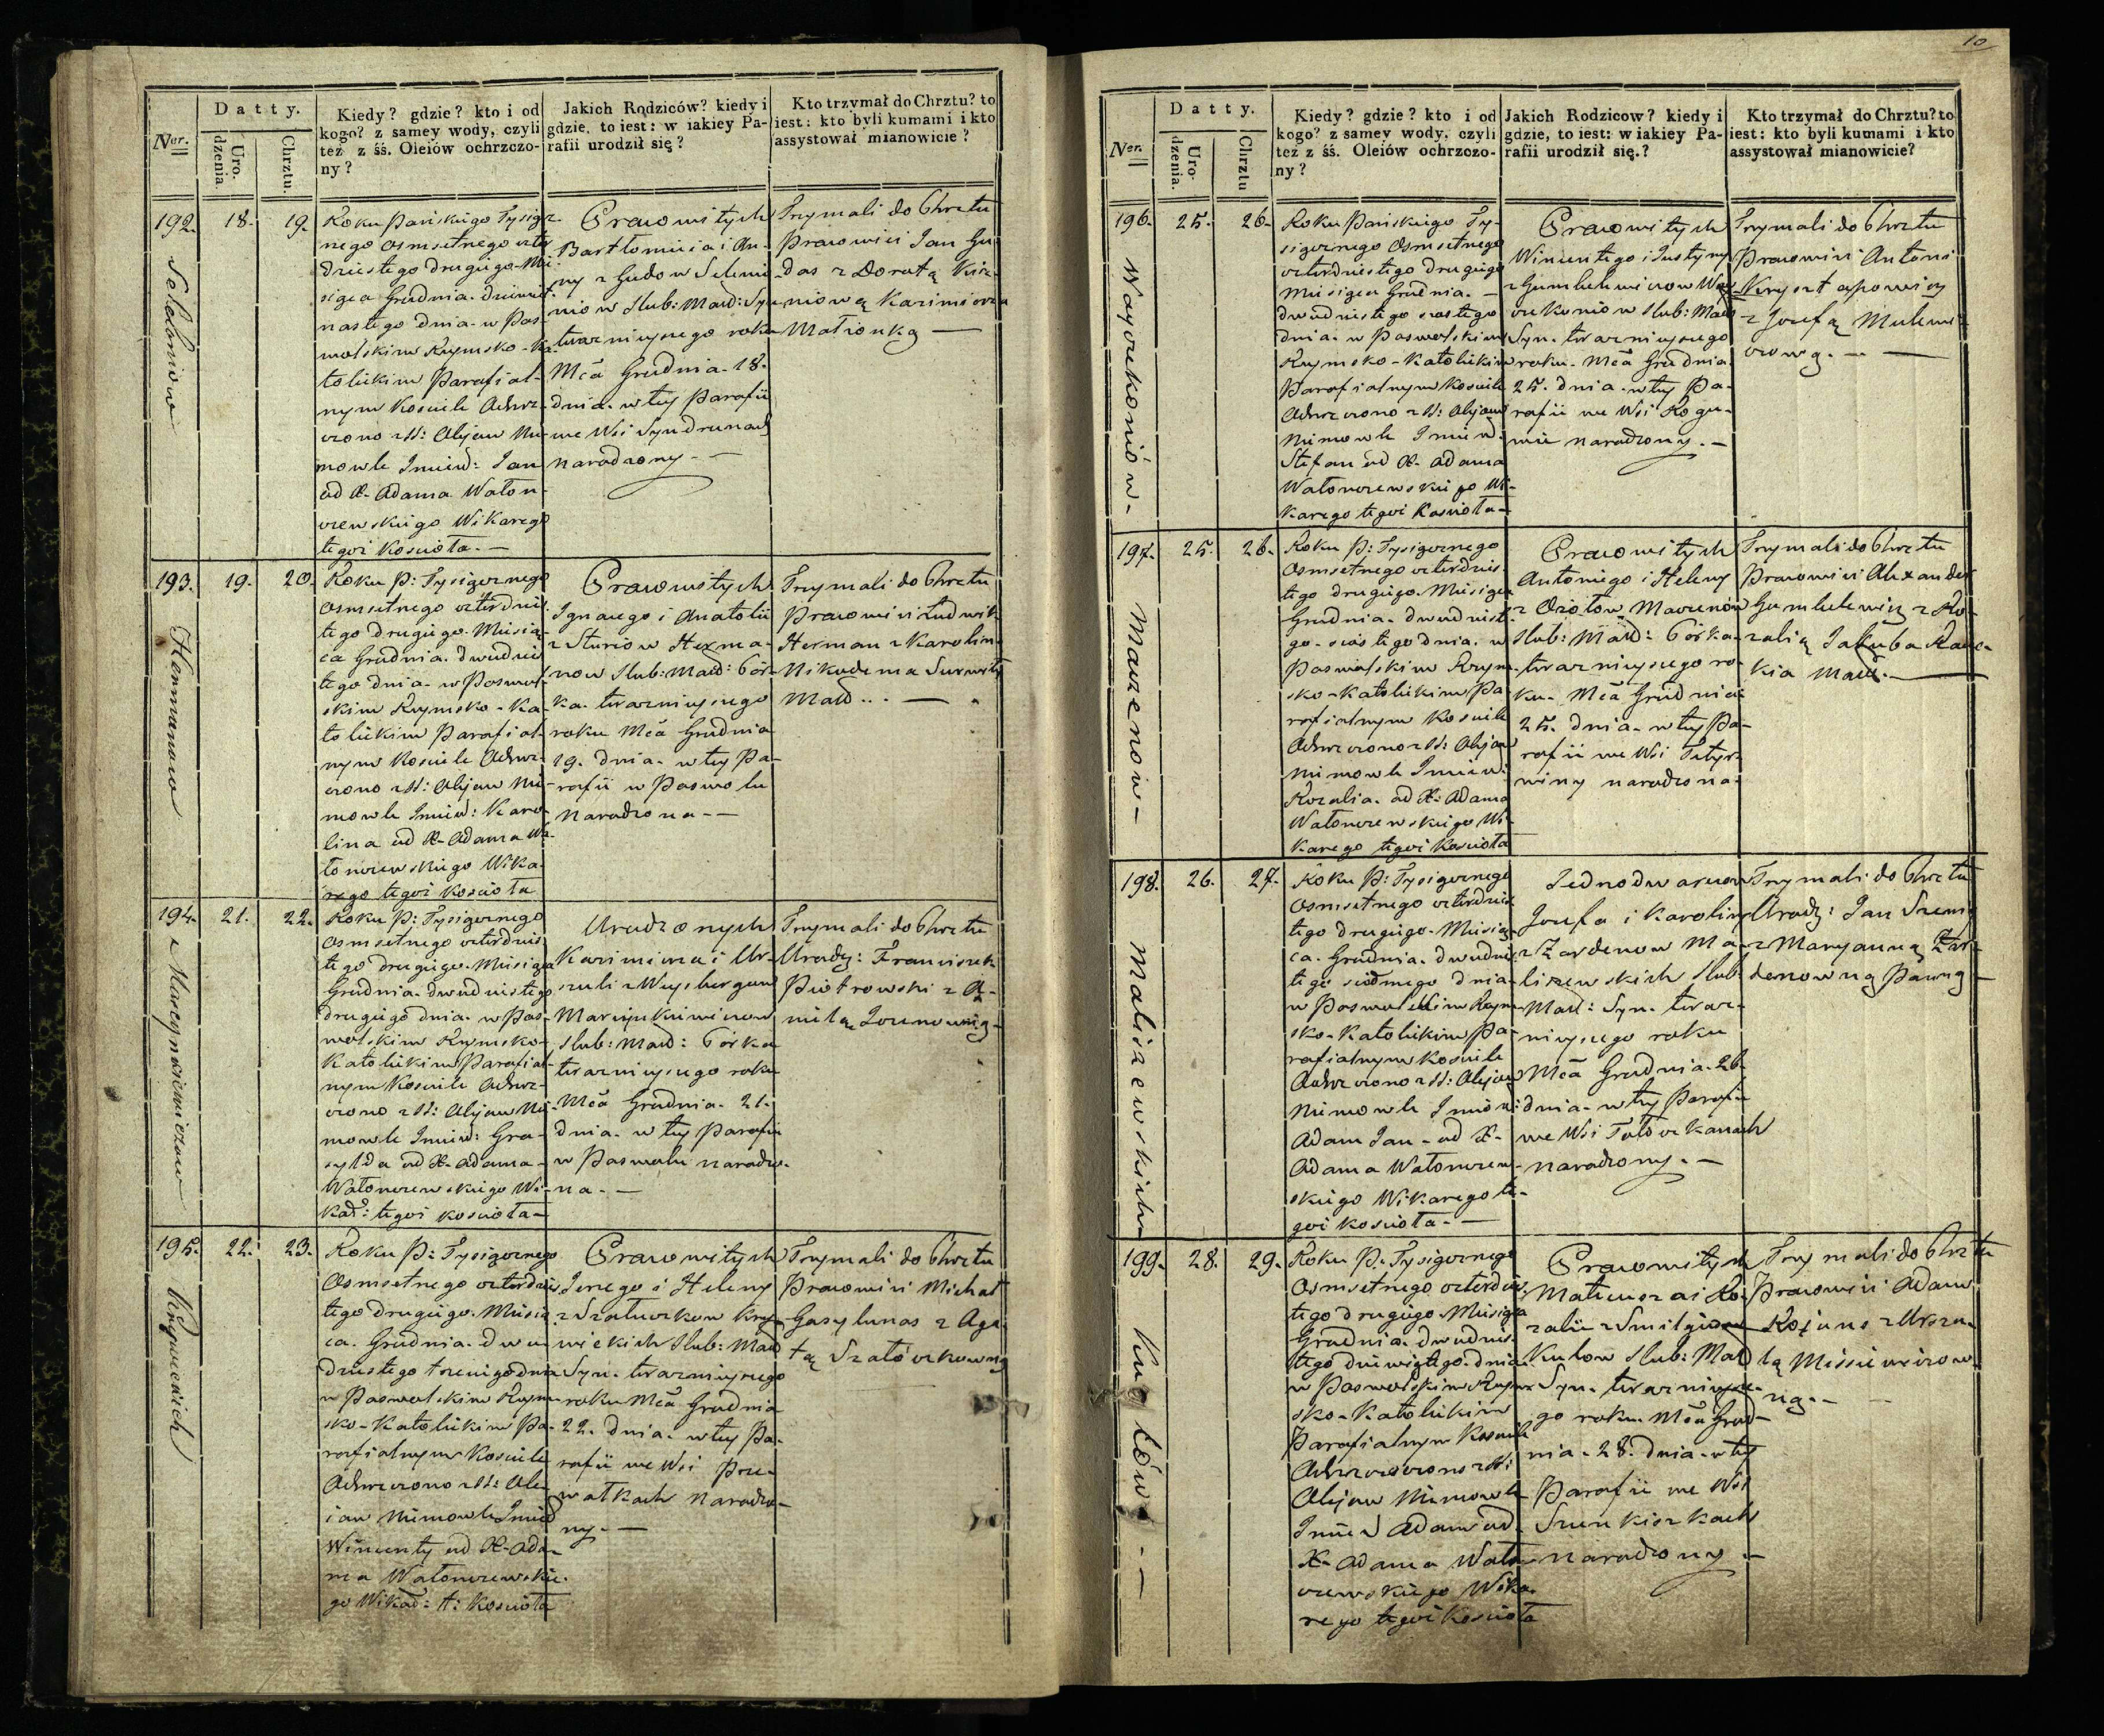 10
Datty.
Ner.
Uro-
dzenia.
Chrztu.
Kiedy? gdzie? kto i od
kogo? z samey wody, czyli
też z śś. Oleiów ochrzczo-
ny?
Jakich Rodziców? kiedy i
gdzie, to iest: w iakiey Pa-
rafii urodził się?
Kto trzymał do Chrztu? to
iest: kto byli kumami i kto
assystował mianowicie?
192. 18. 19.
Roku Pańskiego Tysiącz-
nego Osmsetnego czter
dziestego drugiego Mie-
siąca Grudnia dziewięt-
nastego dnia w Pos-
wolskim Rzymsko-Ka-
tolickim Parafial-
nym Kosciele Ochrz-
czono z SS: Olejow Nie-
mowle Imied: Jan
od X. Adama Waton-
czewskiego Wikarego
tegoż Kościoła.
Prawowitych
Bartłomieja i An-
ny z Gudow
Slub: Małż: Syn
terazniejszego roku
Mca Grudnia 18.
dnia w tey Parafii
we Wsi Syndrunach
narodzony
Trzymali do Chrztu
Prawowici Jan Gu-
das z Dorotą
Kazimierza
Małżonką
193. 19. 20.
Hermanow
Roku P: Tysiącznego
Osmsetnego czterdzies
tego drugiego Miesią-
ca Grudnia dwudzies
tego dnia w Poswol
skim Rzymsko-Ka-
tolickim Parafial-
nym Kosciele Ochrz-
czono z SS: Olejow Nie-
mowle Imied: Karo-
lina od X. Adama Wa-
tonczewskiego Wika-
rego tegoż Kościoła
Prawowitych
Ignacego i Anatolii
z Herma-
now Slub: Małż: Cór-
ka terazniejszego
roku Mca Grudnia
19. dnia w tey Pa-
rafii w Poswolu
Narodzona
Trzymali do Chrztu
Prawowici Ludwik
Herman z Karoliną
Nikodema
Małż.
194. 21. 22.
Roku P: Tysiącznego
Osmsetnego czterdzies
tego drugiego Miesiąca
Grudnia dwudziestego
drugiego dnia w Pos-
wolskim Rzymsko-
Katolickim Parafial-
nym Kosciele Ochrz-
czono z SS: Olejow Nie-
mowle Imied: Gra-
żylda od X. Adama
Watonczewskiego Wi-
kar: tegoż Kościoła
Urodzonych
Kazimierza i Ur-
szuli z
Marcynkiewiczow
Slub: Małż: Córka
terazniejszego roku
Mca Grudnia 21.
dnia w tey Parafii
w Poswolu narodzo-
na.
Trzymali do Chrztu
Urodz: Franciszek
Piotrowski z
195. 22. 23.
Krzywickich
Roku P: Tysiącznego
Osmsetnego czterdzies
tego drugiego Miesią
ca Grudnia dwu-
dziestego trzeciego dnia
w Poswolskim Rzym-
sko-Katolickim Pa-
rafialnym Kosciele
Ochrzczono z SS: Ole-
iow Niemowle Imied
Wincenty od X. Ada-
ma Watonczewskie-
go Wikar: t: Kościoła
Prawowitych
Jerzego i Heleny
z Szatuczkow Krzy-
wickich Slub: Małż
Syn terazniejszego
roku Mca Grudnia
22. dnia w tey Pa-
rafii we Wsi
narodzo-
ny.
Trzymali do Chrztu
Prawowici Michał
Gasylunas z Aga-
tą
Datty.
Ner.
Uro-
dzenia.
Chrztu
Kiedy? gdzie? kto i od
kogo? z samey wody, czyli
też z śś. Oleiów ochrzczo-
ny?
Jakich Rodzicow? kiedy i
gdzie, to iest: w iakiey Pa-
rafii urodził się.?
Kto trzymał do Chrztu? to
iest: kto byli kumami i kto
assystował mianowicie?
196. 25. 26.
Roku Pańskiego Ty-
siącznego Osmsetnego
czterdziestego drugiego
Miesiąca Grudnia
dwudziestego szostego
dnia w Poswolskim
Rzymsko-Katolickim
Parafialnym Kosciele
Ochrzczono z SS: Olejow
Niemowle Imied.
Stefan od X. Adama
Watonczewskiego Wi-
karego tegoż Kościoła
Prawowitych
Wincentego i Justyny
z Gumbelewiczow
Slub: Małż
Syn terazniejszego
roku Mca Grudnia
25. dnia w tey Pa-
rafii we Wsi
narodzony.
Trzymali do Chrztu
Prawowici Antoni
Krysztapowicz
z Jozefą
197. 25. 26.
Roku P: Tysiącznego
Osmsetnego czterdzies
tego drugiego Miesiąca
Grudnia dwudzieste-
go szostego dnia w
Poswolskim Rzym-
sko-Katolickim Pa-
rafialnym Kosciele
Ochrzczono z SS: Olejow
Niemowle Imied:
Rozalia od X: Adama
Watonczewskiego Wi-
karego tegoż Kościoła
Prawowitych
Antoniego i Heleny
z Ozołow
Slub: Małż: Córka
terazniejszego ro-
ku Mca Grudnia
25. dnia w tey Pa-
rafii we Wsi
narodzona.
Trzymali do Chrztu
Prawowici Alexander
Gumbelewicz z Ro-
zalią Jakuba
Małż.
198. 26. 27.
Maliszewskich
Roku P: Tysiącznego
Osmsetnego czterdzies
tego drugiego Miesią
ca Grudnia dwudzies
tego siodmego dnia
w Poswolskim Rzym
sko-Katolickim Pa-
rafialnym Kosciele
Ochrzczono z SS: Olejow
Niemowle Imion:
Adam Jan od X.
Adama Watonczew-
skiego Wikarego te-
goż Kościoła.
Jednodworcow
Jozefa i Karoliny
z Zardenow Ma-
liszewskich Slub:
Małż: Syn teraz-
niejszego roku
Mca Grudnia 26.
dnia w tey Parafii
we Wsi
narodzony.
Trzymali do Chrztu
Urodz: Jan
z Maryanną Zar-
denowną Panną
199. 28. 29.
Roku P. Tysiącznego
Osmsetnego czterdzies
tego drugiego Miesiąca
Grudnia dwudzies-
tego dziewiątego dnia
w Poswolskim Rzym
sko-Katolickim
Parafialnym Kosciele
Ochrzczono z SS:
Olejow Niemowle
Imied Adam od
X. Adama Waton-
czewskiego Wika-
rego tegoż Kościoła
Prawowitych
Mateusza i Ro-
zalii z
Slub: Małż
Syn terazniejsze-
go roku Mca Grud-
nia 28. dnia w tey
Parafii we Wsi
narodzony
Trzymali do Chrztu
Prawowici Adam
z Urszu-
lą